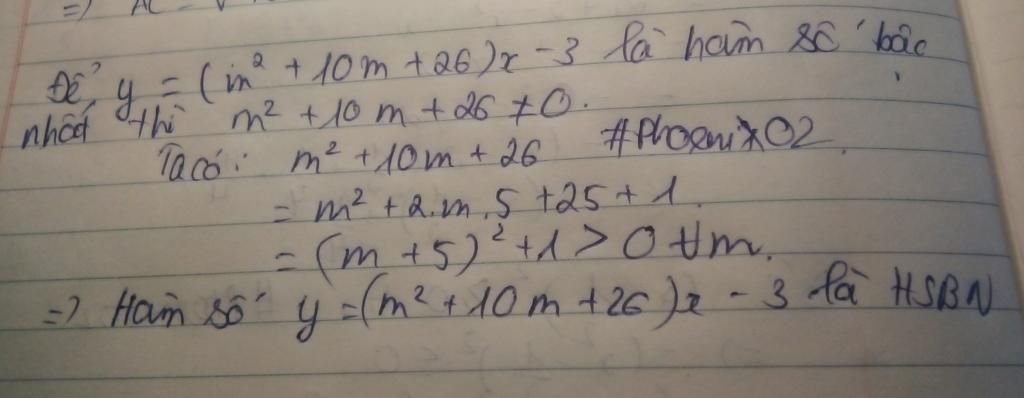 =) AC =
Để y = (m² + 10m + 26)x - 3 là hàm số bậc
nhất thì m² + 10m + 26 ≠ 0.
Ta có: m² + 10m + 26 #Phoenix02.
= m² + 2.m.5 + 25 + 1.
= (m + 5)² + 1 > 0 ∀m.
=) Hàm số y = (m² + 10m + 26)x - 3 là HSBN